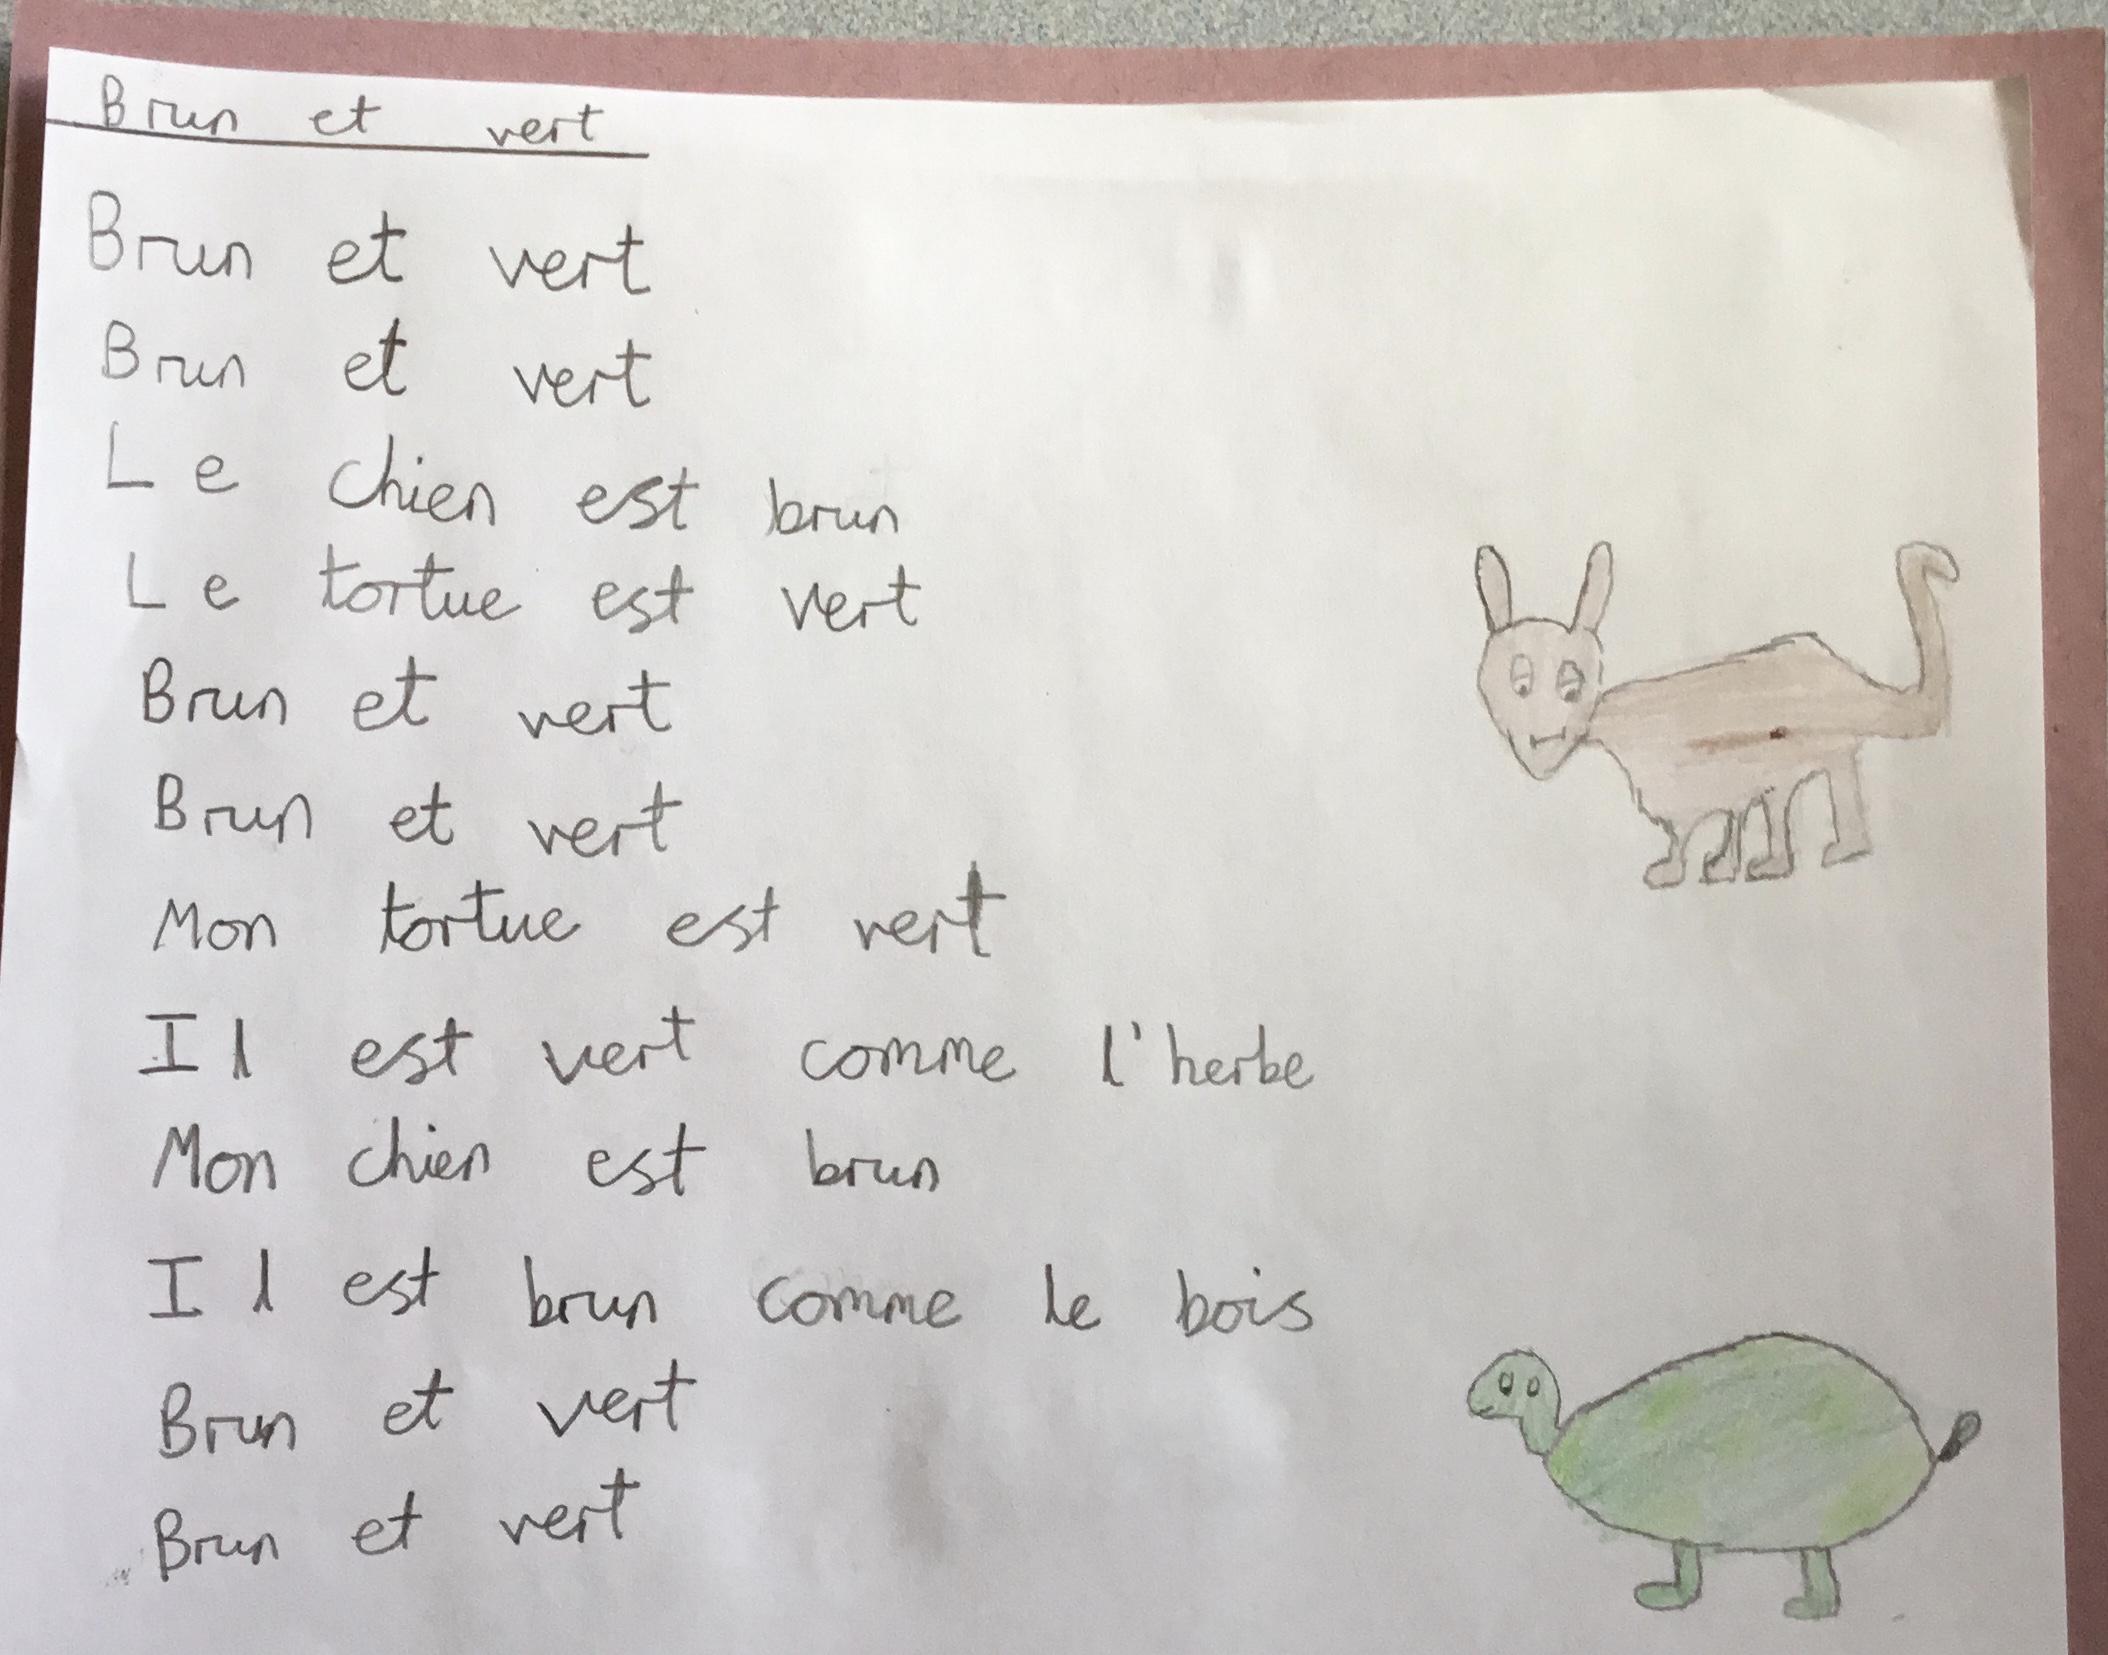 Brun et vert
Brun et vert
Brun et vert
Le chien est brun
Le tortue est vert
Brun et vert
Brun et vert
Mon tortue est vert
Il est vert comme l'herbe
Mon chien est brun
Il est brun comme le bois
Brun et vert
Brun et vert